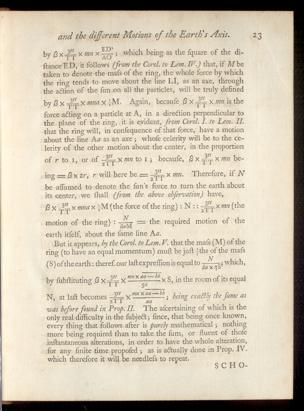 and the different Motions of the Earth's Axis. 23
by ß × 3π/TT × mn × ED²/aO²; which being as the square of the di-
stance ED, it follows (from the Corol. to Lem. IV.) that, if M be
taken to denote the mass of the ring, the whole force by which
the ring tends to move about the line LI, as an axe, through
the action of the sun on all the particles, will be truly defined
by ß × 3π/TT × mna × ½M. Again, because ß × 3π/TT × mn is the
force acting on a particle at A, in a direction perpendicular to
the plane of the ring, it is evident, from Corol. I. to Lem. II.
that the ring will, in consequence of that force, have a motion
about the line Aa as an axe; whose celerity will be to the ce-
lerity of the other motion about the center, in the proportion
of r to 1, or of 3π/2TT × mn to 1; because, ß × 3π/TT × mn be-
ing = ß × 2r, r will here be = 3π/2TT × mn. Therefore, if N
be assumed to denote the sun's force to turn the earth about
its center, we shall (from the above observation) have,
ß × 3π/TT × mna × ½M (the force of the ring) : N :: 3π/2TT × mn (the
motion of the ring) : N/ßaM = the required motion of the
earth itself, about the same line Aa.
But it appears, by the Corol. to Lem. V. that the mass (M) of the
ring (to have an equal momentum) must be just ⅖ths of the mass
(S) of the earth: theref. our last expression is equal to N/ßa × ⅖S; which,
by substituting ß × 3π/TT × mn × aa−bb/5a × S, in the room of its equal
N, at last becomes 3π/2TT × mn × aa−bb/aa; being exactly the same as
was before found in Prop. II. The ascertaining of which is the
only real difficulty in the subject; since, that being once known,
every thing that follows after is purely mathematical; nothing
more being required than to take the sum, or fluent of those
instantaneous alterations, in order to have the whole alteration,
for any finite time proposed; as is actually done in Prop. IV.
which therefore it will be needless to repeat.
SCHO-